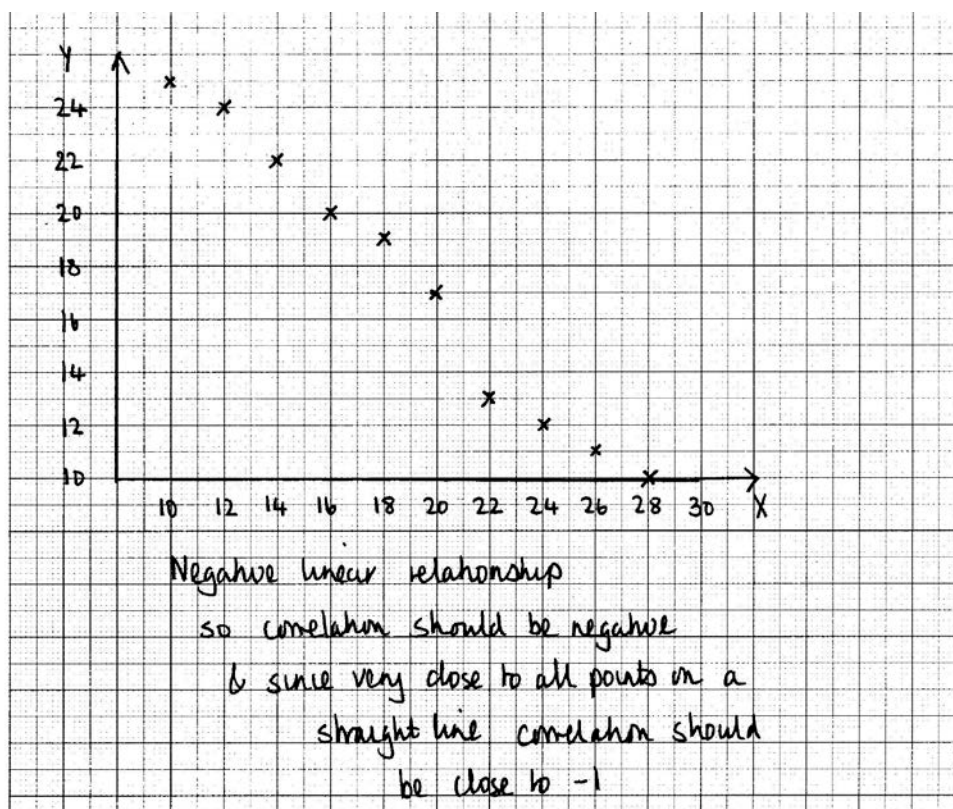 Y
24
22
20
18
16
14
12
10
10 12 14 16 18 20 22 24 26 28 30 X
Negative linear relationship
so correlation should be negative
& since very close to all points in a
straight line correlation should
be close to -1